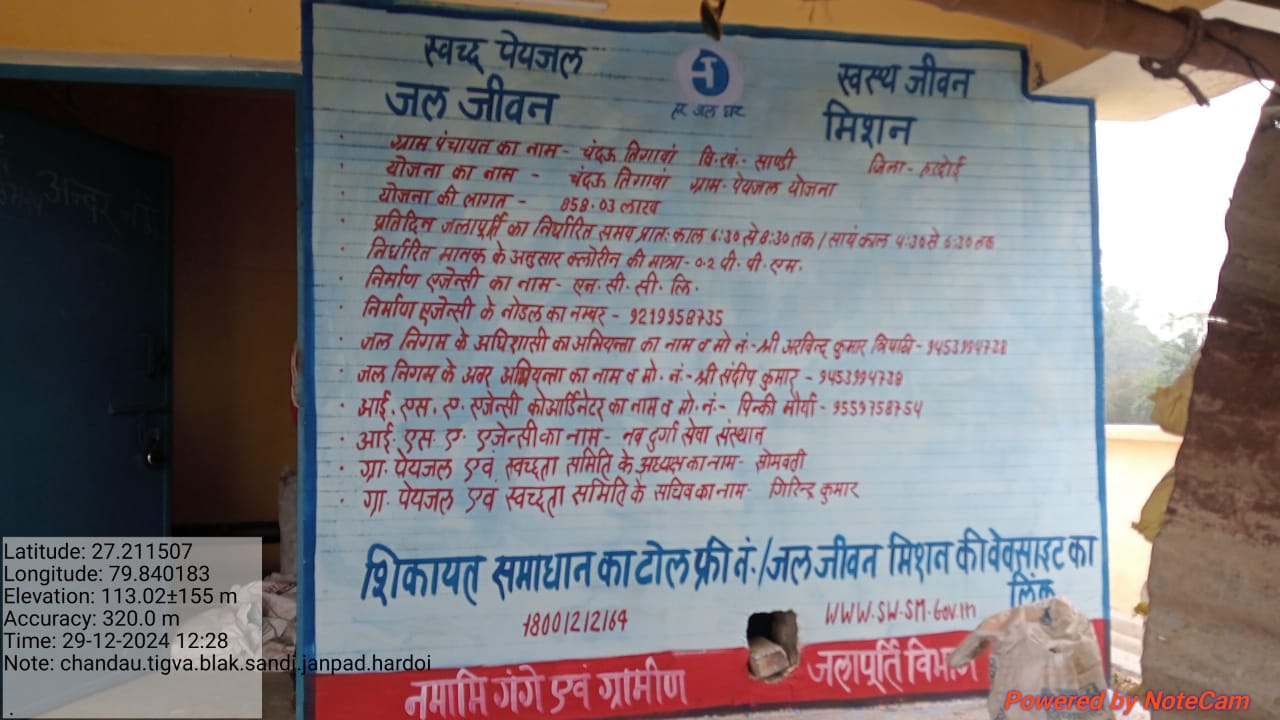 स्वच्छ पेयजल
स्वस्थ जीवन
जल जीवन
मिशन
हर जल घर
· ग्राम पंचायत का नाम - चंदऊ तिगावां वि.खं.- साण्डी जिला - हरदोई
· योजना का नाम - चंदऊ तिगावां ग्राम पेयजल योजना
· योजना की लागत - 858.03 लाख
· प्रतिदिन जलापूर्ति का निर्धारित समय प्रातः काल 6:30 से 8:30 तक / सायं काल 4:30 से 6:30 तक
· निर्धारित मानक के अनुसार क्लोरीन की मात्रा - 0.2 पी. पी. एम.
· निर्माण एजेन्सी का नाम - एन. सी. सी. लि.
· निर्माण एजेन्सी के नोडल का नम्बर - 9219958735
· जल निगम के अधिशासी का अभियन्ता का नाम व मो नं.- श्री अरविन्द कुमार त्रिपाठी - 9453994738
· जल निगम के अवर अभियन्ता का नाम व मो. नं.- श्री संदीप कुमार - 9453994738
· आई. एस. ए. एजेन्सी कोआर्डिनेटर का नाम व मो. नं.- पिन्की मौर्या - 9559758754
· आई. एस. ए. एजेन्सी का नाम - नव दुर्गा सेवा संस्थान
· ग्रा. पेयजल एवं स्वच्छता समिति के अध्यक्ष का नाम - सोमवती
· ग्रा. पेयजल एवं स्वच्छता समिति के सचिव का नाम - गिरिन्द्र कुमार
शिकायत समाधान का टोल फ्री नं./जल जीवन मिशन की वेबसाइट का
लिंक
18001212164
WWW.SW-SM.Gov.in
नमामि गंगे एवं ग्रामीण
जलापूर्ति विभाग
Latitude: 27.211507
Longitude: 79.840183
Elevation: 113.02±155 m
Accuracy: 320.0 m
Time: 29-12-2024 12:28
Note: chandau.tigva.blak.sandi.janpad.hardoi
Powered by NoteCam